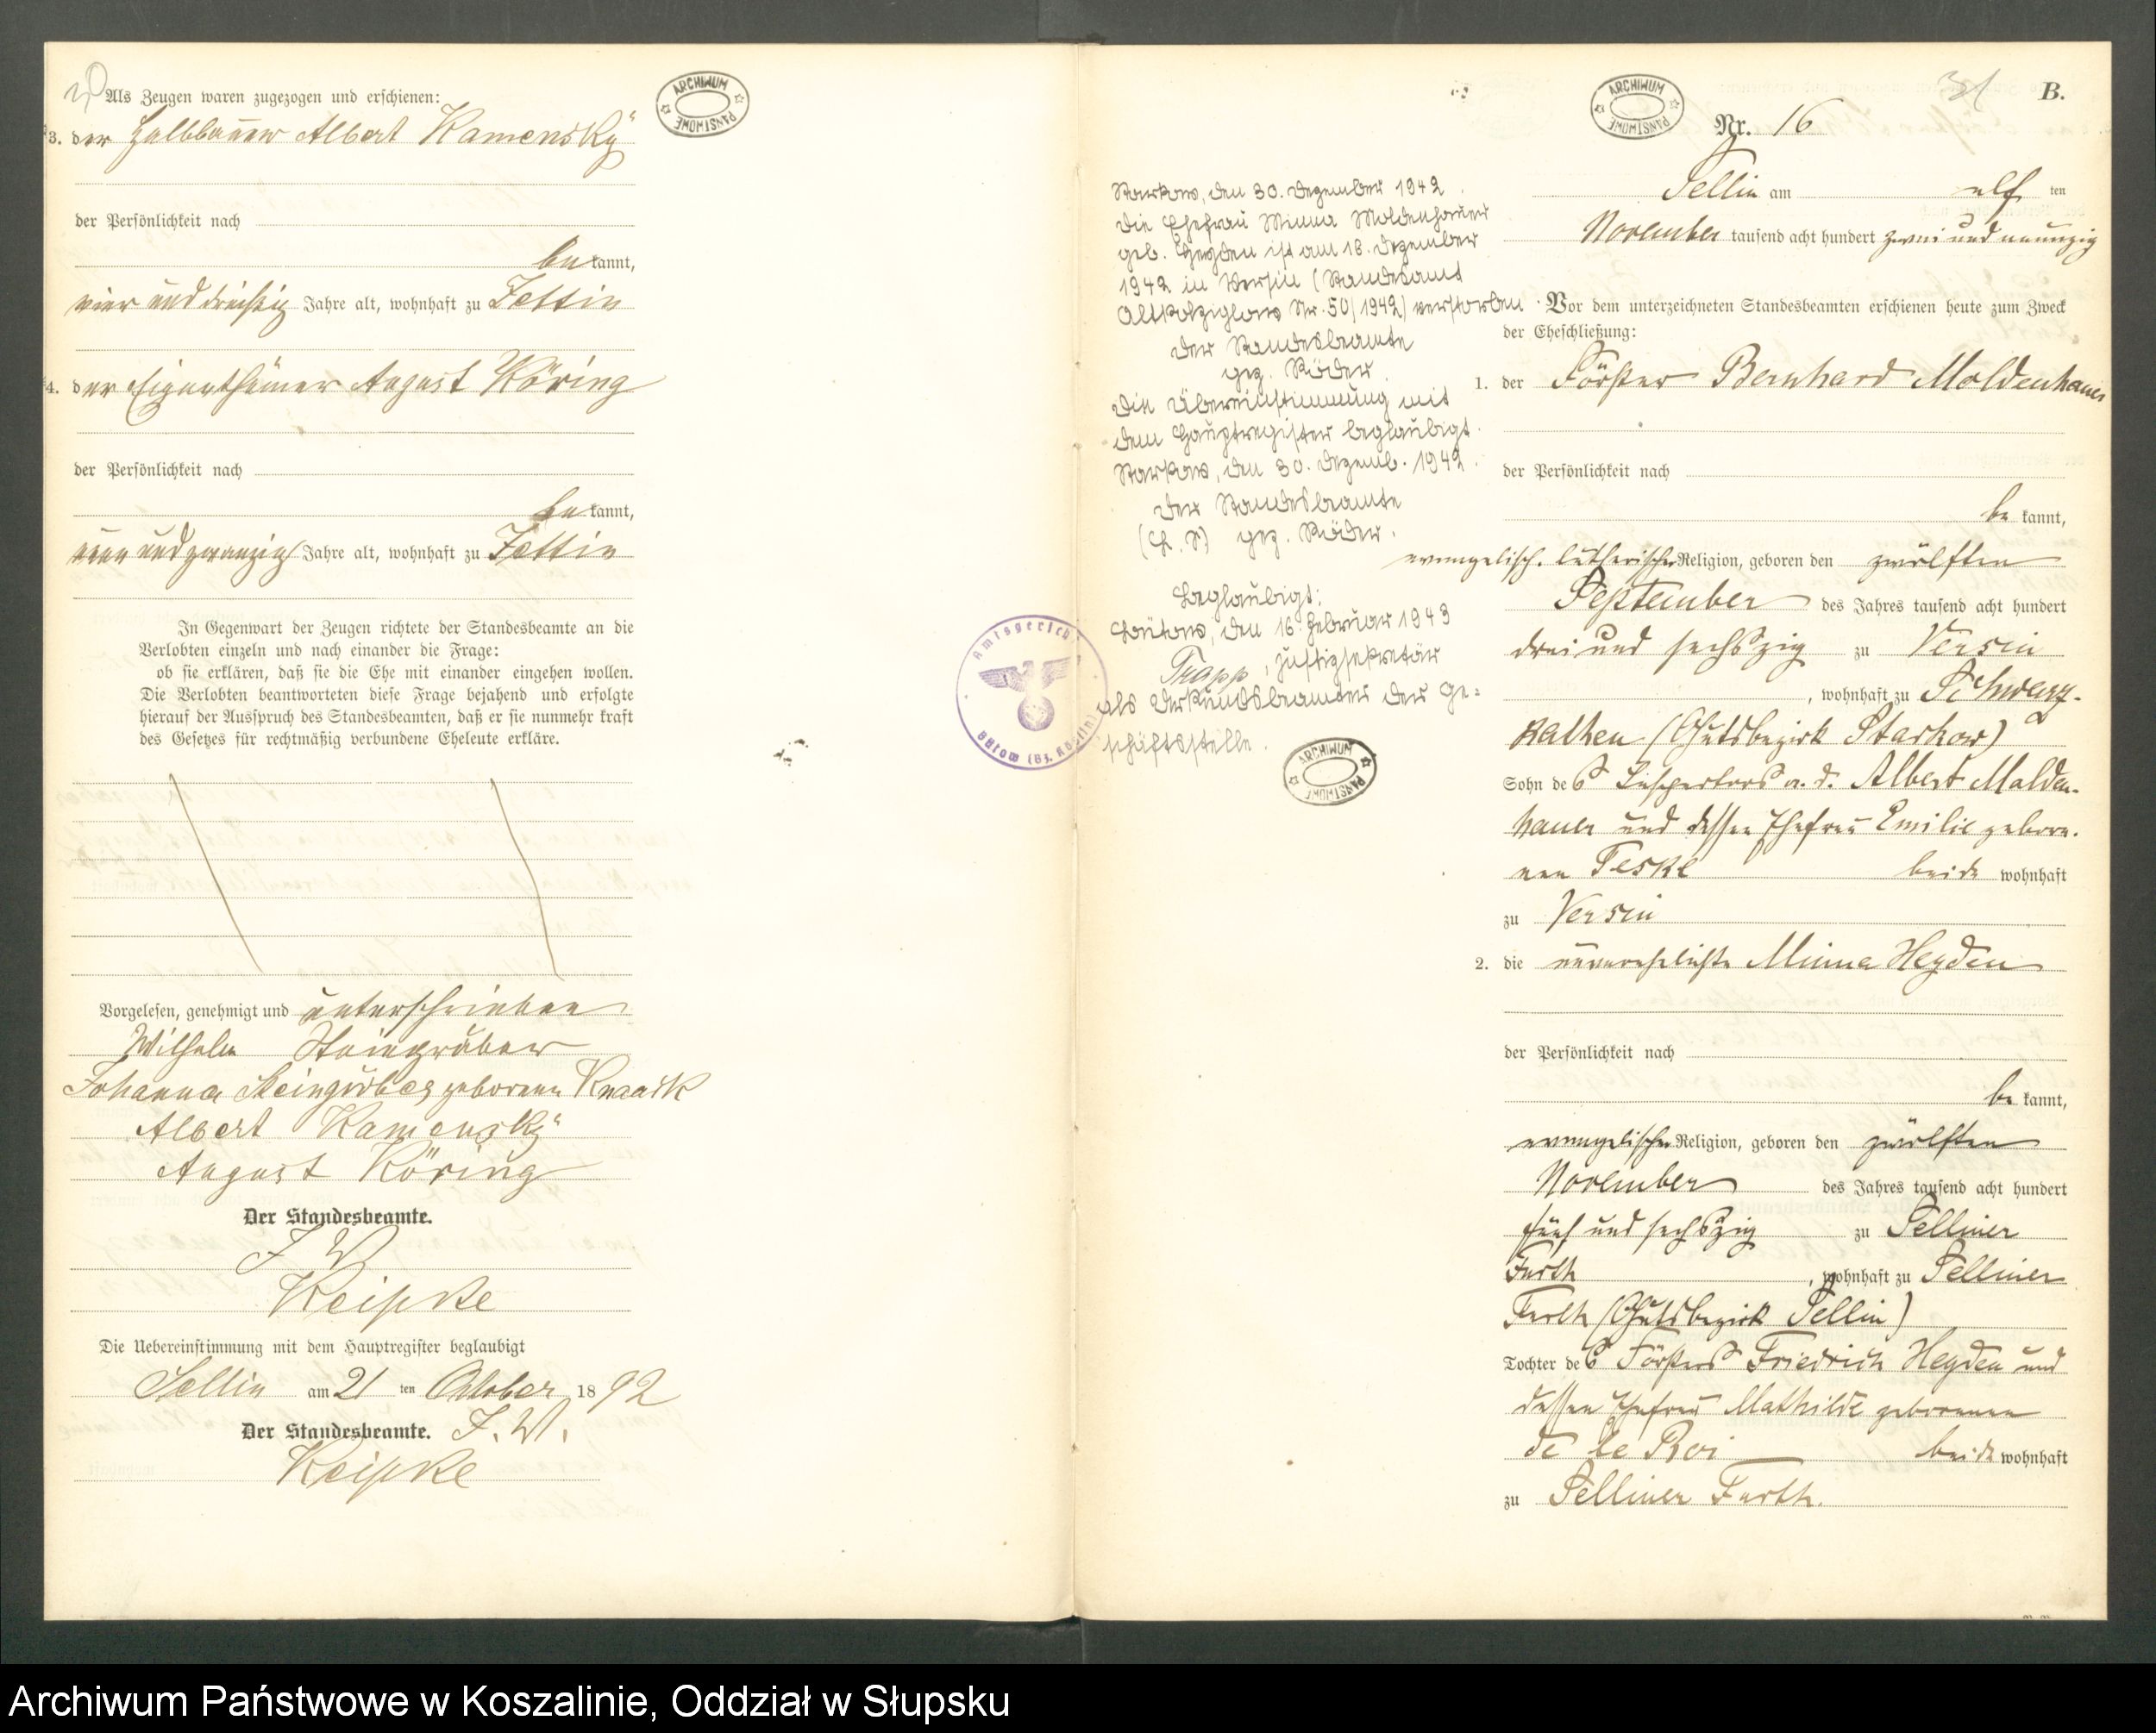 Als Zeugen waren zugezogen und erschienen:
3. der Halbbauer Albert Kamensky
der Persönlichkeit nach
bekannt,
vier und dreißig Jahre alt, wohnhaft zu Zettin
4. der Eigenthümer August Köring
der Persönlichkeit nach
bekannt,
neun und zwanzig Jahre alt, wohnhaft zu Zettin
In Gegenwart der Zeugen richtete der Standesbeamte an die
Verlobten einzeln und nach einander die Frage:
ob sie erklären, daß sie die Ehe mit einander eingehen wollen.
Die Verlobten beantworteten diese Frage bejahend und erfolgte
hierauf der Ausspruch des Standesbeamten, daß er sie nunmehr kraft
des Gesetzes für rechtmäßig verbundene Eheleute erkläre.
Vorgelesen, genehmigt und unterschrieben
Wilhelm Steingräber
Johanna Steingräber geborene Knaack
Albert Kamensky
August Köring
Der Standesbeamte.
J. V.
Keipke
Die Uebereinstimmung mit dem Hauptregister beglaubigt
Sellin am 21 ten October 1892
Der Standesbeamte. J. V.
Keipke
ARCHIWUM PAŃSTWOWE
Starkow, den 30. Dezember 1942.
Die Ehefrau Minna Moldenhauer
geb. Heyden ist am 18. Dezember
1942 in Versin (Standesamt
Altkolziglow Nr. 50/1942) verstorben
Der Standesbeamte
gez. Röder.
Die Übereinstimmung mit
dem Hauptregister beglaubigt.
Starkow, den 30. Dezemb. 1942.
Der Standesbeamte
(L. S.) gez. Röder.
Beglaubigt:
Bütow, den 16. Februar 1943
Trapp, Justizsekretär
als Urkundsbeamter der Ge=
schäftsstelle.
Amtsgericht
Bütow (Bz. Köslin)
ARCHIWUM PAŃSTWOWE
ARCHIWUM PAŃSTWOWE
31 B.
Nr. 16
Sellin am elf ten
November tausend acht hundert zwei und neunzig
Vor dem unterzeichneten Standesbeamten erschienen heute zum Zweck
der Eheschließung:
1. der Förster Bernhard Moldenhauer
der Persönlichkeit nach
be kannt,
evangelisch-lutherischer Religion, geboren den zwölften
September des Jahres tausend acht hundert
drei und sechszig zu Versin
, wohnhaft zu Schwarz-
kathen (Gutsbezirk Starkow)
Sohn des Inspectors a. d. Albert Molden-
hauer und dessen Ehefrau Emilie gebore-
nen Teske beide wohnhaft
zu Versin
2. die unverehelichte Minna Heyden
der Persönlichkeit nach
be kannt,
evangelischer Religion, geboren den zwölften
November des Jahres tausend acht hundert
fünf und sechszig zu Selliner
Furth , wohnhaft zu Selliner
Furth (Gutsbezirk Sellin)
Tochter des Försters Friedrich Heyden und
dessen Ehefrau Mathilde geborenen
de le Roi beide wohnhaft
zu Selliner Furth.
Archiwum Państwowe w Koszalinie, Oddział w Słupsku